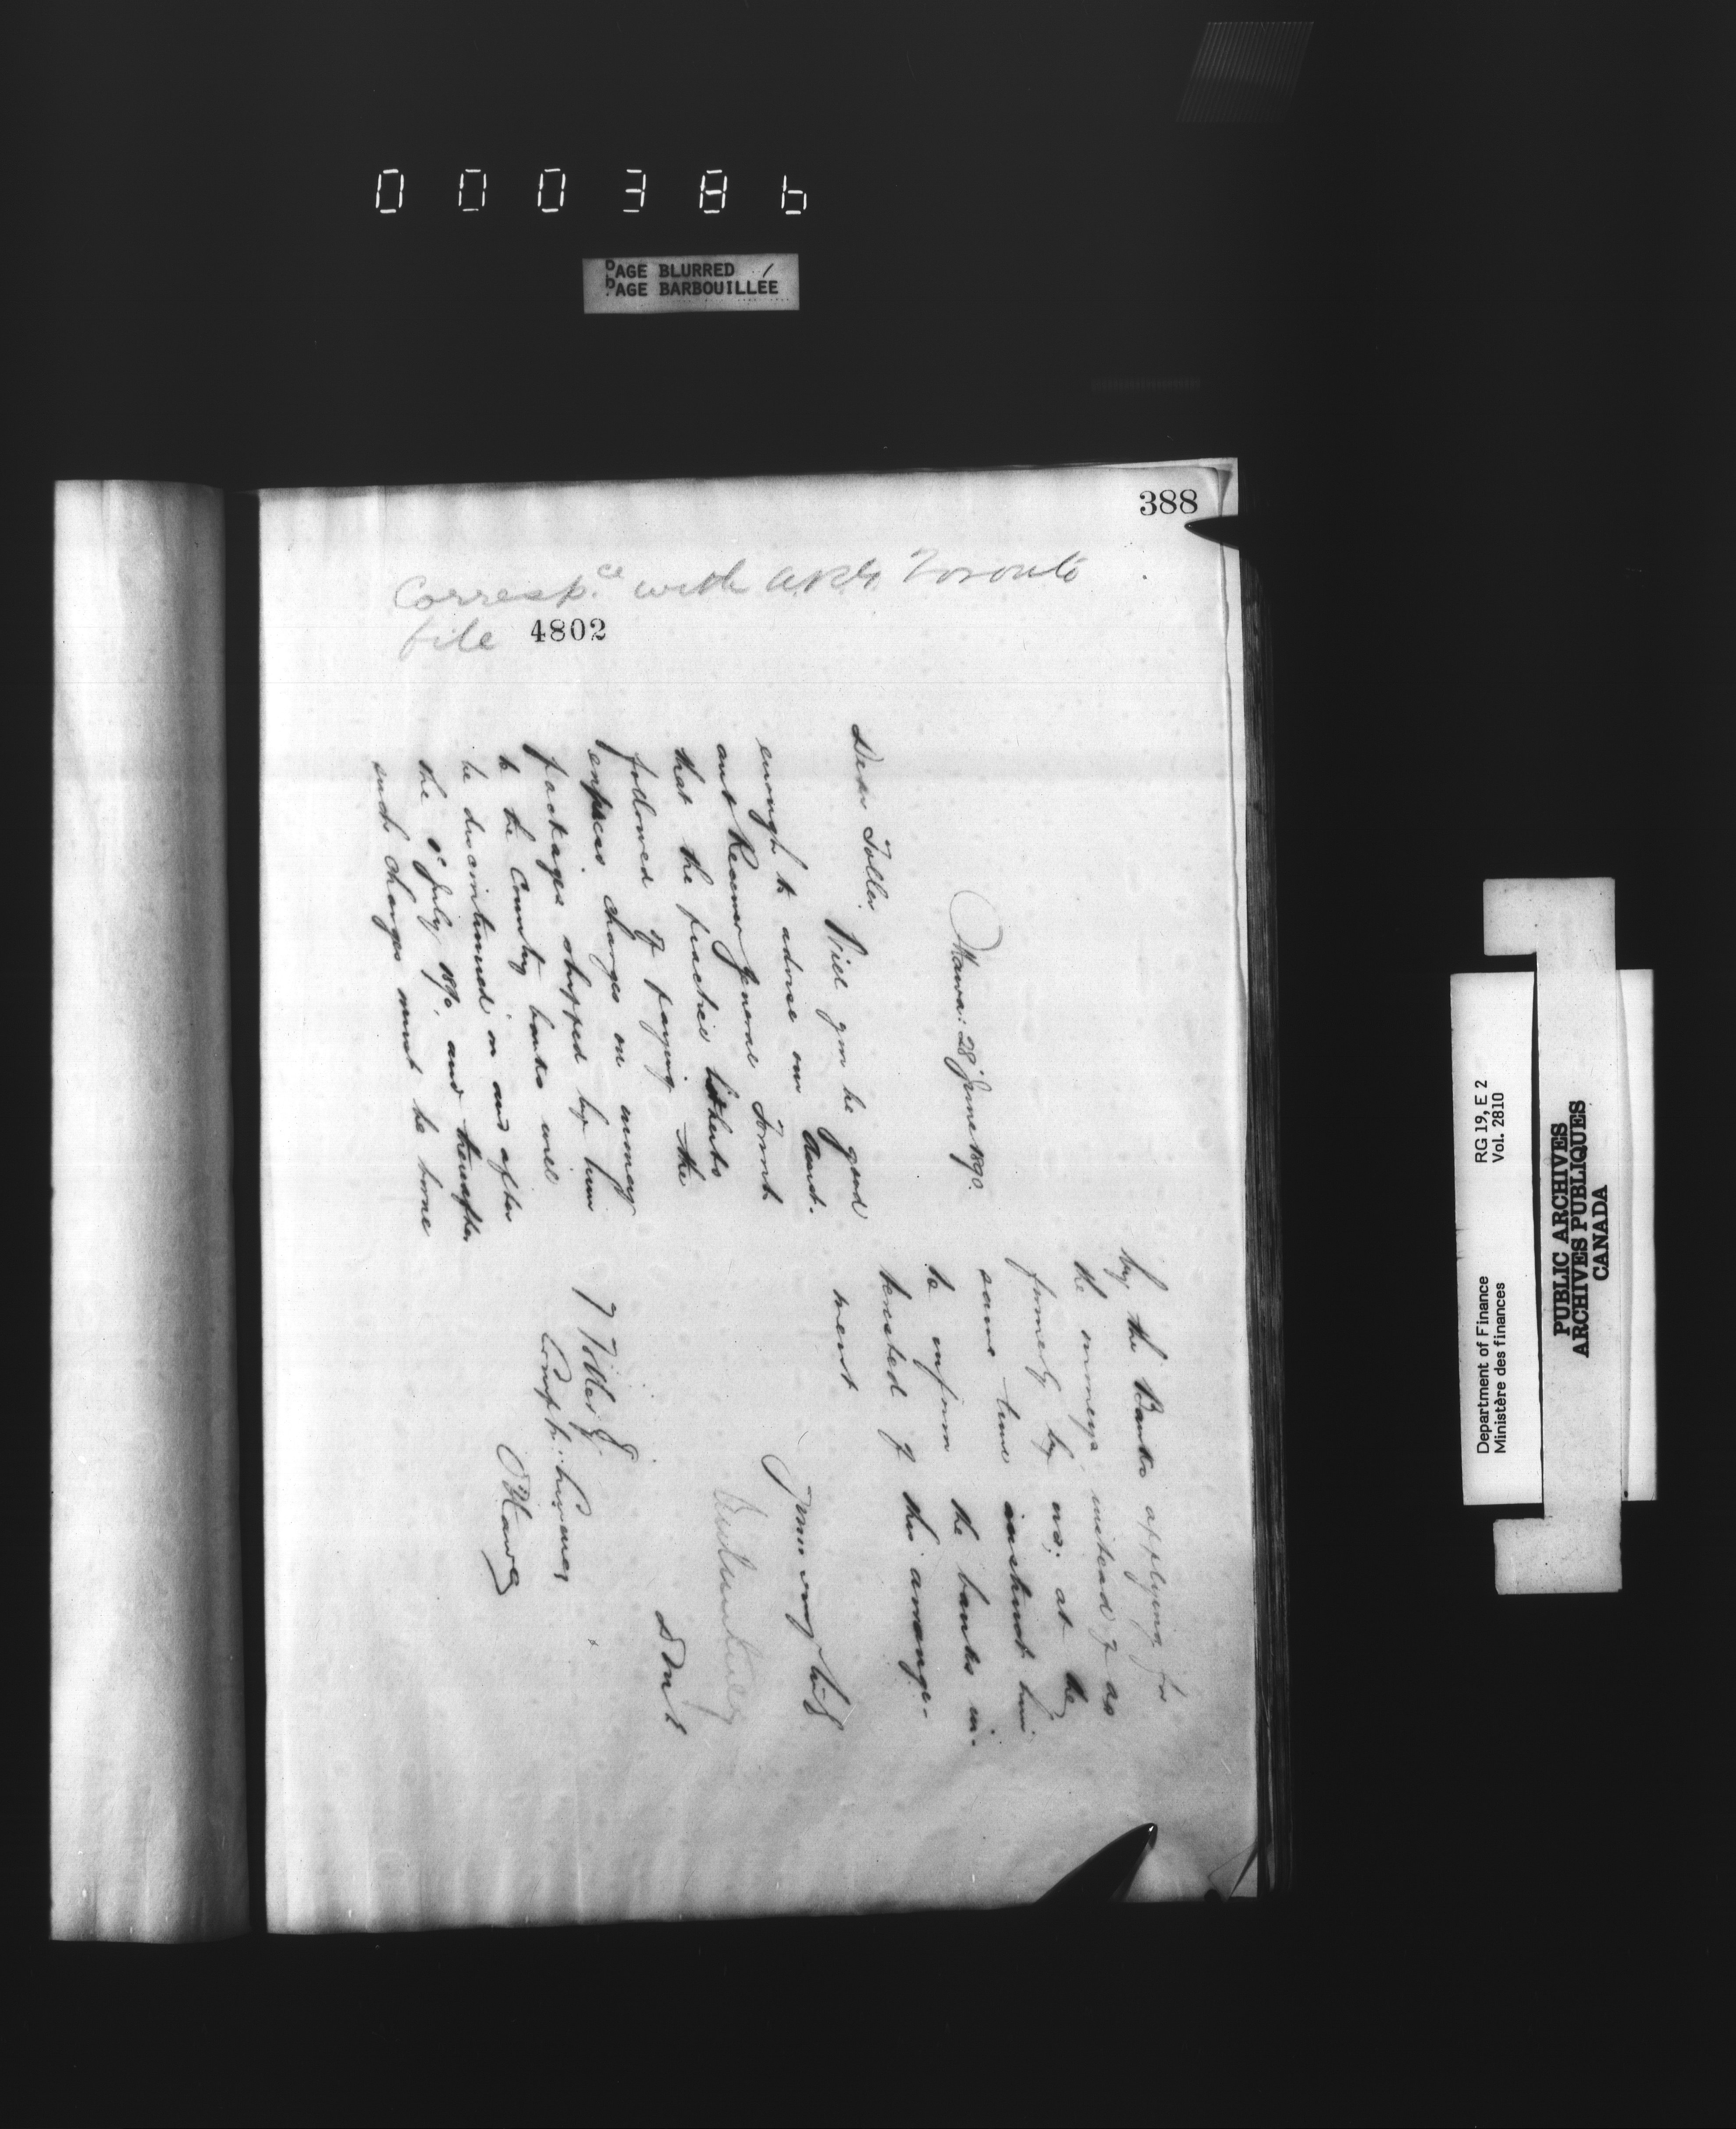 000386
PAGE BLURRED
PAGE BARBOUILLÉE
388
Corresp.ce with A.R.G. Toronto
file 4802
Ottawa: 28 June 1890.
Dear Toller.
Will you be good
enough to advise our Asst.
ant Receiver General Toront
that the practice hitherto
followed of paying the
express charges on money
packages shipped by him
to the Country banks will
be discontinued on and after
the 1st July 1890, and thereafter
such charges must be borne
by the Banks applying for
the moneys instead of as
formerly by us; at the
same time instruct him
to inform the banks in-
terested of this arrange-
ment
Yours very truly
DMF
J Toller Esq
Comptr. Currency
Ottawa
Department of Finance
Ministère des finances
RG 19, E 2
Vol. 2810
PUBLIC ARCHIVES
ARCHIVES PUBLIQUES
CANADA